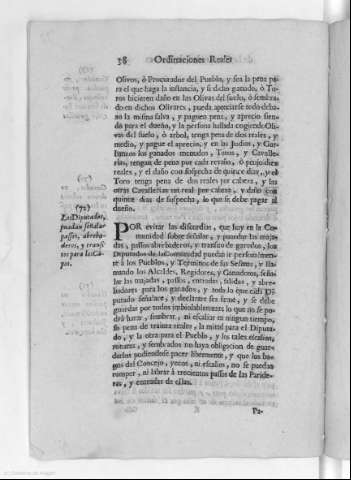 38 Ordinaciones Reales
Olivos, ò Procurador del Pueblo, y sea la pena pa-
ra el que haga la instancia, y si dicho ganado, ò To-
ros hicieren daño en las Olivas del suelo, ò sembra-
do en dichos Olivares, pueda apreciarse todo deba-
xo la misma salva, y paguen pena, y aprecio sien-
do para el dueño, y la persona hallada cogiendo Oli-
vas del suelo, ò arbol, tenga pena de dos reales, y
medio, y pague el aprecio, y en las Judias, y
los ganados menudos, Toros, y Cavalle-
rias, tengan de pena por cada rebaño, ò
reales, y el daño con sospecha de quince dias, y el
Toro tenga pena de dos reales por cabeza, y las
otras Cavallerias un real por cabeza, y daño con
quince dias de sospecha, lo que se debe pagar al
dueño.
(72)
Los Diputados,
puedan señalar
passos, abreba-
deros, y transi-
tos para las Ca-
POR evitar las discordias, que hay en la Co-
munidad sobre señalar, y mandar las maja-
das, passos abrebaderos, y transito de ganados, los
Diputados de la Comunidad puedan ir personalmen-
te à los Pueblos, y Terminos de su Sesma, y lla-
mando los Alcaldes, Regidores, y Ganaderos, seña-
lar las majadas, passos, entradas, salidas, y abre-
baderos para los ganados, y todo lo que cada Di-
putado señalare, y declarare sea firme, y se debe
guardar por todos inviolablemente lo que no se po-
drà labrar, sembrar, ni escaliar in ningun tiempo,
so pena de treinta reales, la mitad para el Diputa-
do, y la otra para el Pueblo, y los tales escalios,
roturas, y sembrados no haya obligacion de guar-
darlos pudiendose pacer libremente, y que los bu-
gos del Concejo, yecos, ni escalios, no se puedan
romper, ni labrar à trecientos passos de las Paride-
ras, y entradas de ellas.
Pa-